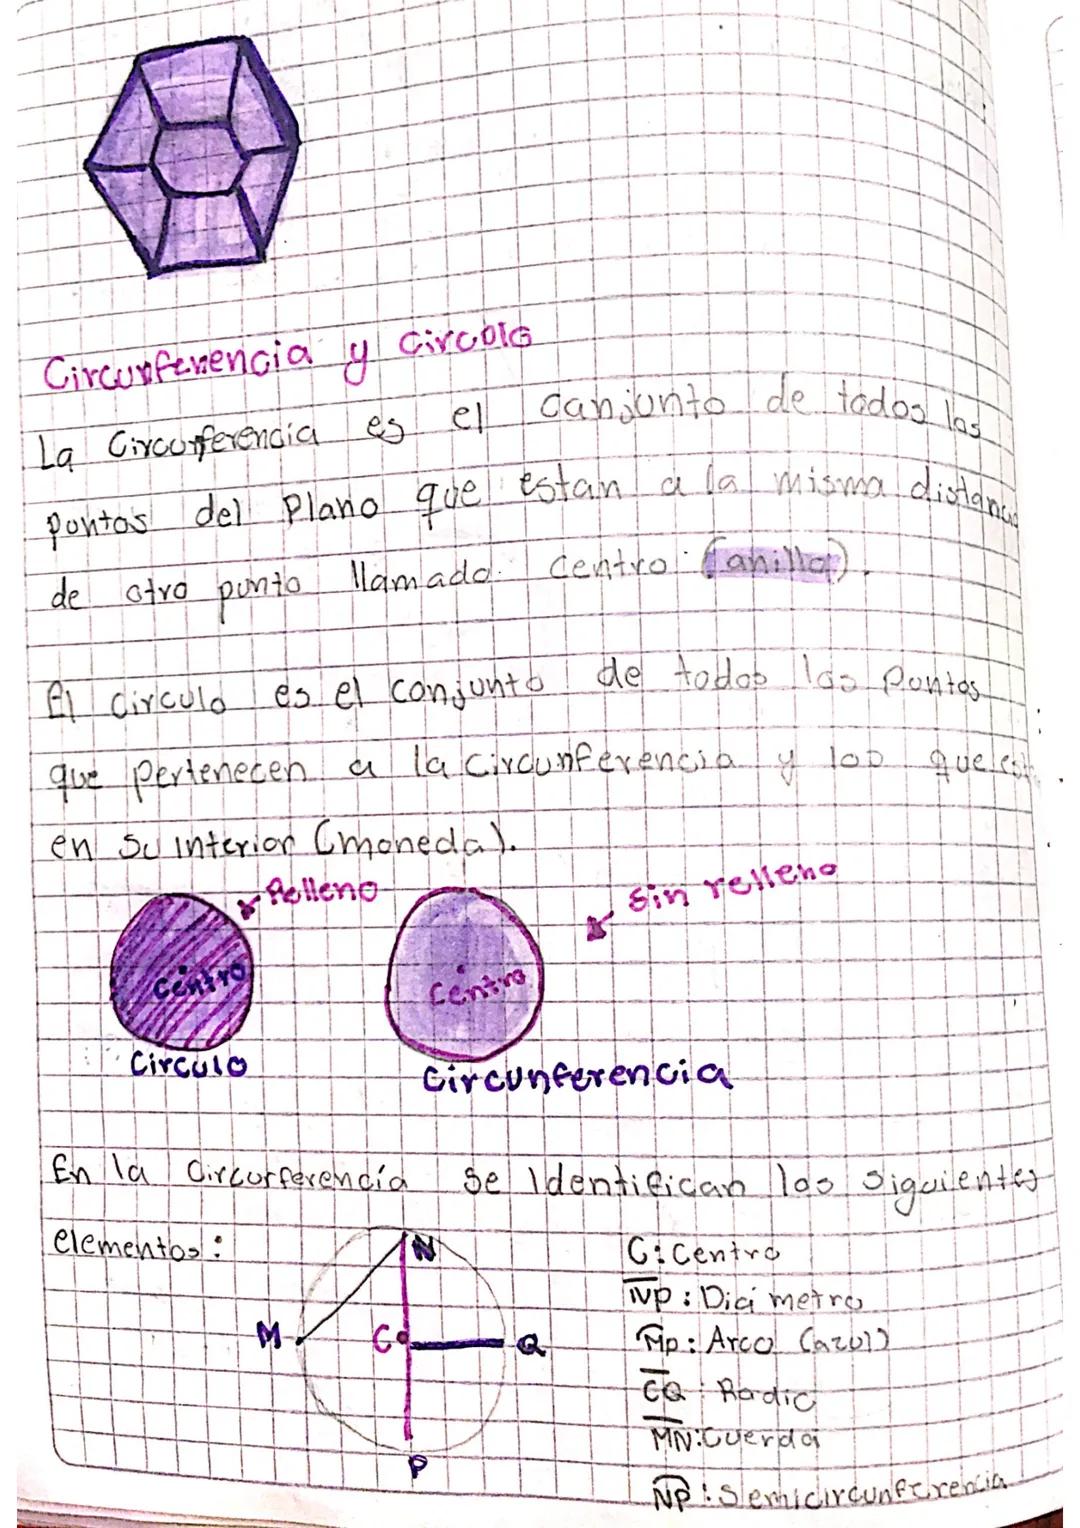 Circunferencia y Circolo
La Circunferencia es el Conjunto de todos los
puntos del Plano que estan a la misma distancia
de otro punto llamado Centro (anillo).
El circulo es el conjunto de todos los Puntos
que pertenecen a la circunferencia y los que est
en su interior (moneda).
Relleno
Sin relleno
Centro
Centro
Circulo
Circunferencia
En la Circunferencia se Identifican los siguientes
elementos:
N
M
C
Q
P
C: Centro
N̅P̅: Diámetro
M͡P: Arco (azul)
C̅Q̅: Radio
M̅N̅: Cuerda
N͡P: Semicircunferencia